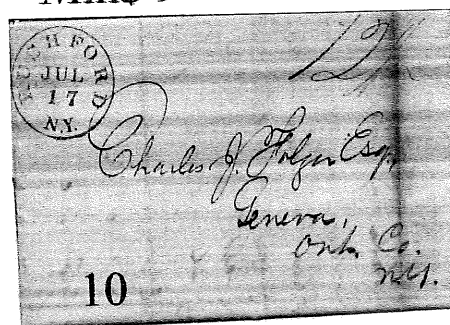 RICHFORD
JUL
17
N.Y.
12½
Charles J. Folger Esq.
Geneva,
Ont. Co.
N.Y.
10